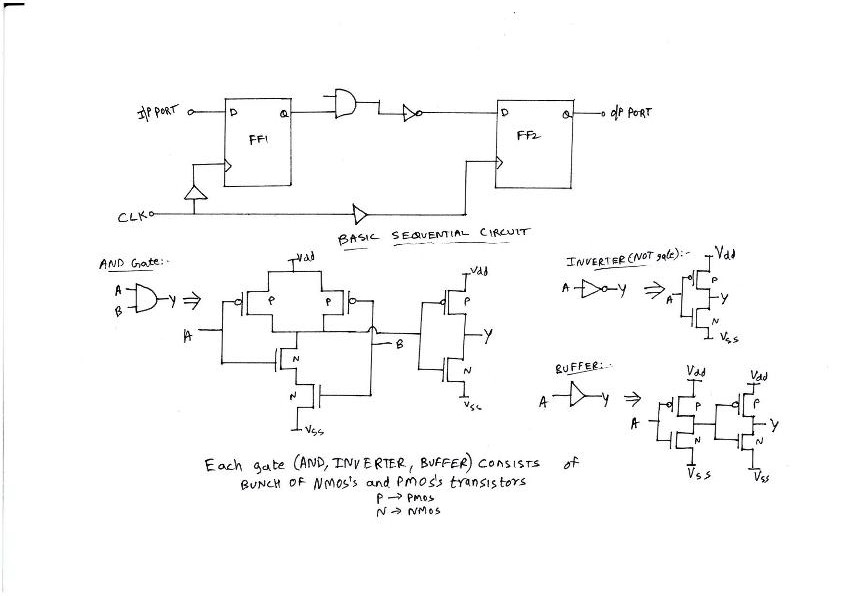 I/P PORT
D
Q
FF1
D
Q
FF2
O/P PORT
CLK
BASIC SEQUENTIAL CIRCUIT
AND Gate:-
A
B
Y
Vdd
P
P
A
B
N
N
Vss
Vdd
P
Y
N
Vss
INVERTER(NOT gate):-
A
Y
Vdd
P
A
Y
N
Vss
BUFFER:-
A
Y
Vdd
Vdd
P
P
A
Y
N
N
Vss
Vss
Each gate (AND, INVERTER, BUFFER) CONSISTS of
BUNCH OF NMOS's and PMOS's transistors
P → PMOS
N → NMOS